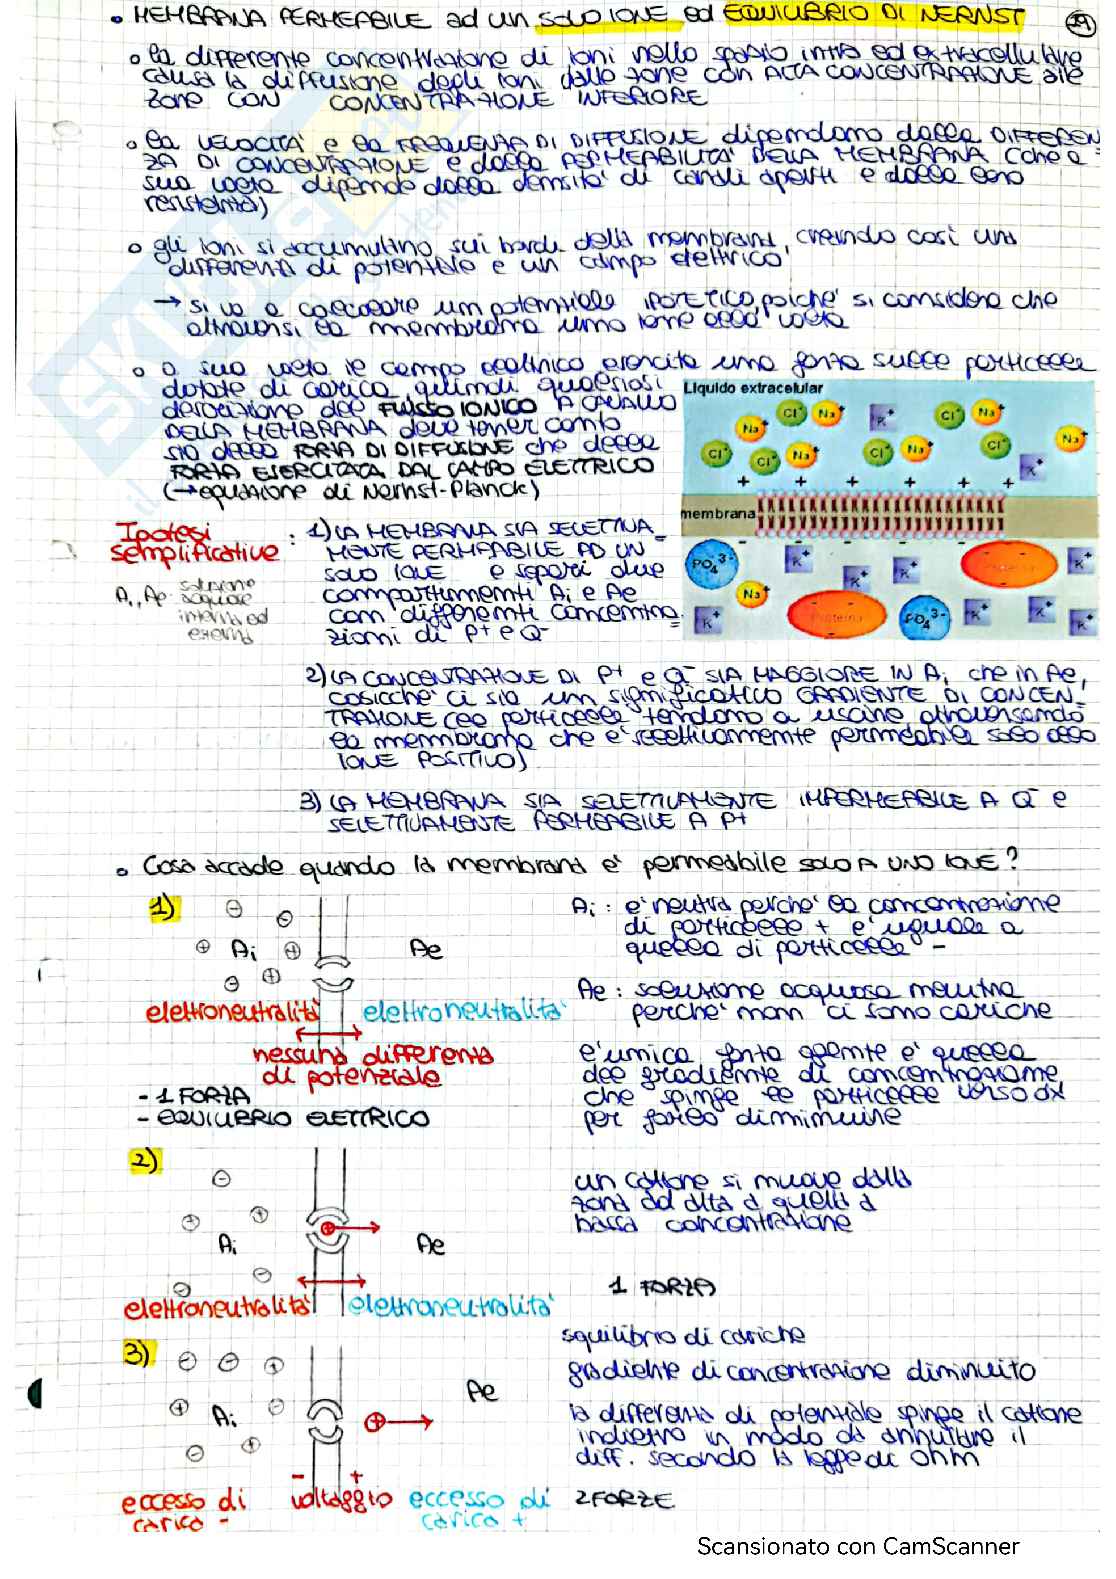 • MEMBRANA PERMEABILE ad un SOLO IONE ed EQUILIBRIO DI NERNST
29
o la differente concentrazione di ioni nello spazio intra ed extracellulare
causa la diffusione degli ioni dalle zone con ALTA CONCENTRAZIONE alle
zone CON CONCENTRAZIONE INFERIORE
o la VELOCITA' e la FREQUENZA DI DIFFUSIONE dipendono dalla DIFFEREN
ZA DI CONCENTRAZIONE e dalla PERMEABILITA' DELLA MEMBRANA (che a
sua volta dipende dalla densita' di canali aperti e dalla loro
resistenza)
o gli ioni si accumulano sui bordi della membrana, creando così una
differenza di potenziale e un campo elettrico
→ si va a calcolare un potenziale IPOTETICO, poiche' si considera che
attraversi la membrana uno ione alla volta
o a sua volta il campo elettrico esercita una forza sulle particelle
dotate di carica, quindi qualsiasi
descrizione del FLUSSO IONICO A CAVALLO
DELLA MEMBRANA deve tener conto
sia della FORZA DI DIFFUSIONE che della
FORZA ESERCITATA DAL CAMPO ELETTRICO
(→ equazione di Nernst-Planck)
Liquido extracelular
Cl⁻ Na⁺ K⁺ Cl⁻ Na⁺
Na⁺ Na⁺
Cl⁻ Cl⁻ Na⁺ Cl⁻ Na⁺ Cl⁻ K⁺
+ + + + +
membrana
- - - - -
PO₄³⁻ K⁺ K⁺ K⁺ Proteína K⁺
Na⁺ K⁺ Proteína PO₄³⁻ K⁺ K⁺ K⁺
Ipotesi
semplificative
Ai, Ae: soluzione
acquose
interna ed
esterna
: 1) LA MEMBRANA SIA SELETTIVA
MENTE PERMEABILE AD UN
SOLO IONE e separi due
compartimenti Ai e Ae
con differenti concentra
zioni di P+ e Q-
2) LA CONCENTRAZIONE DI P+ e Q- SIA MAGGIORE IN Ai che in Ae,
cosicche' ci sia un significativo GRADIENTE DI CONCEN
TRAZIONE (le particelle tendono a uscire attraversando
la membrana che e' selettivamente permeabile solo allo
IONE POSITIVO)
3) LA MEMBRANA SIA SELETTIVAMENTE IMPERMEABILE A Q- e
SELETTIVAMENTE PERMEABILE A P+
• Cosa accade quando la membrana e' permeabile SOLO A UNO IONE?
1)
Ai Ae
elettroneutralità elettroneutralità
nessuna differenza
di potenziale
- 1 FORZA
- EQUILIBRIO ELETTRICO
Ai : e' neutra perche' la concentrazione
di particelle + e' uguale a
quella di particelle -
Ae : soluzione acquosa neutra
perche' non ci sono cariche
e' unica forza agente e' quella
del gradiente di concentrazione,
che spinge le particelle verso dx
per farlo diminuire
2)
Ai Ae
elettroneutralità elettroneutralità
un catione si muove dalla
zona ad alta a quella a
bassa concentrazione
1 FORZA
3)
Ai Ae
- +
eccesso di voltaggio eccesso di
carica - carica +
squilibrio di cariche
gradiente di concentrazione diminuito
la differenza di potenziale spinge il catione
indietro in modo da annullare il
diff. secondo la legge di Ohm
2 FORZE
Scansionato con CamScanner